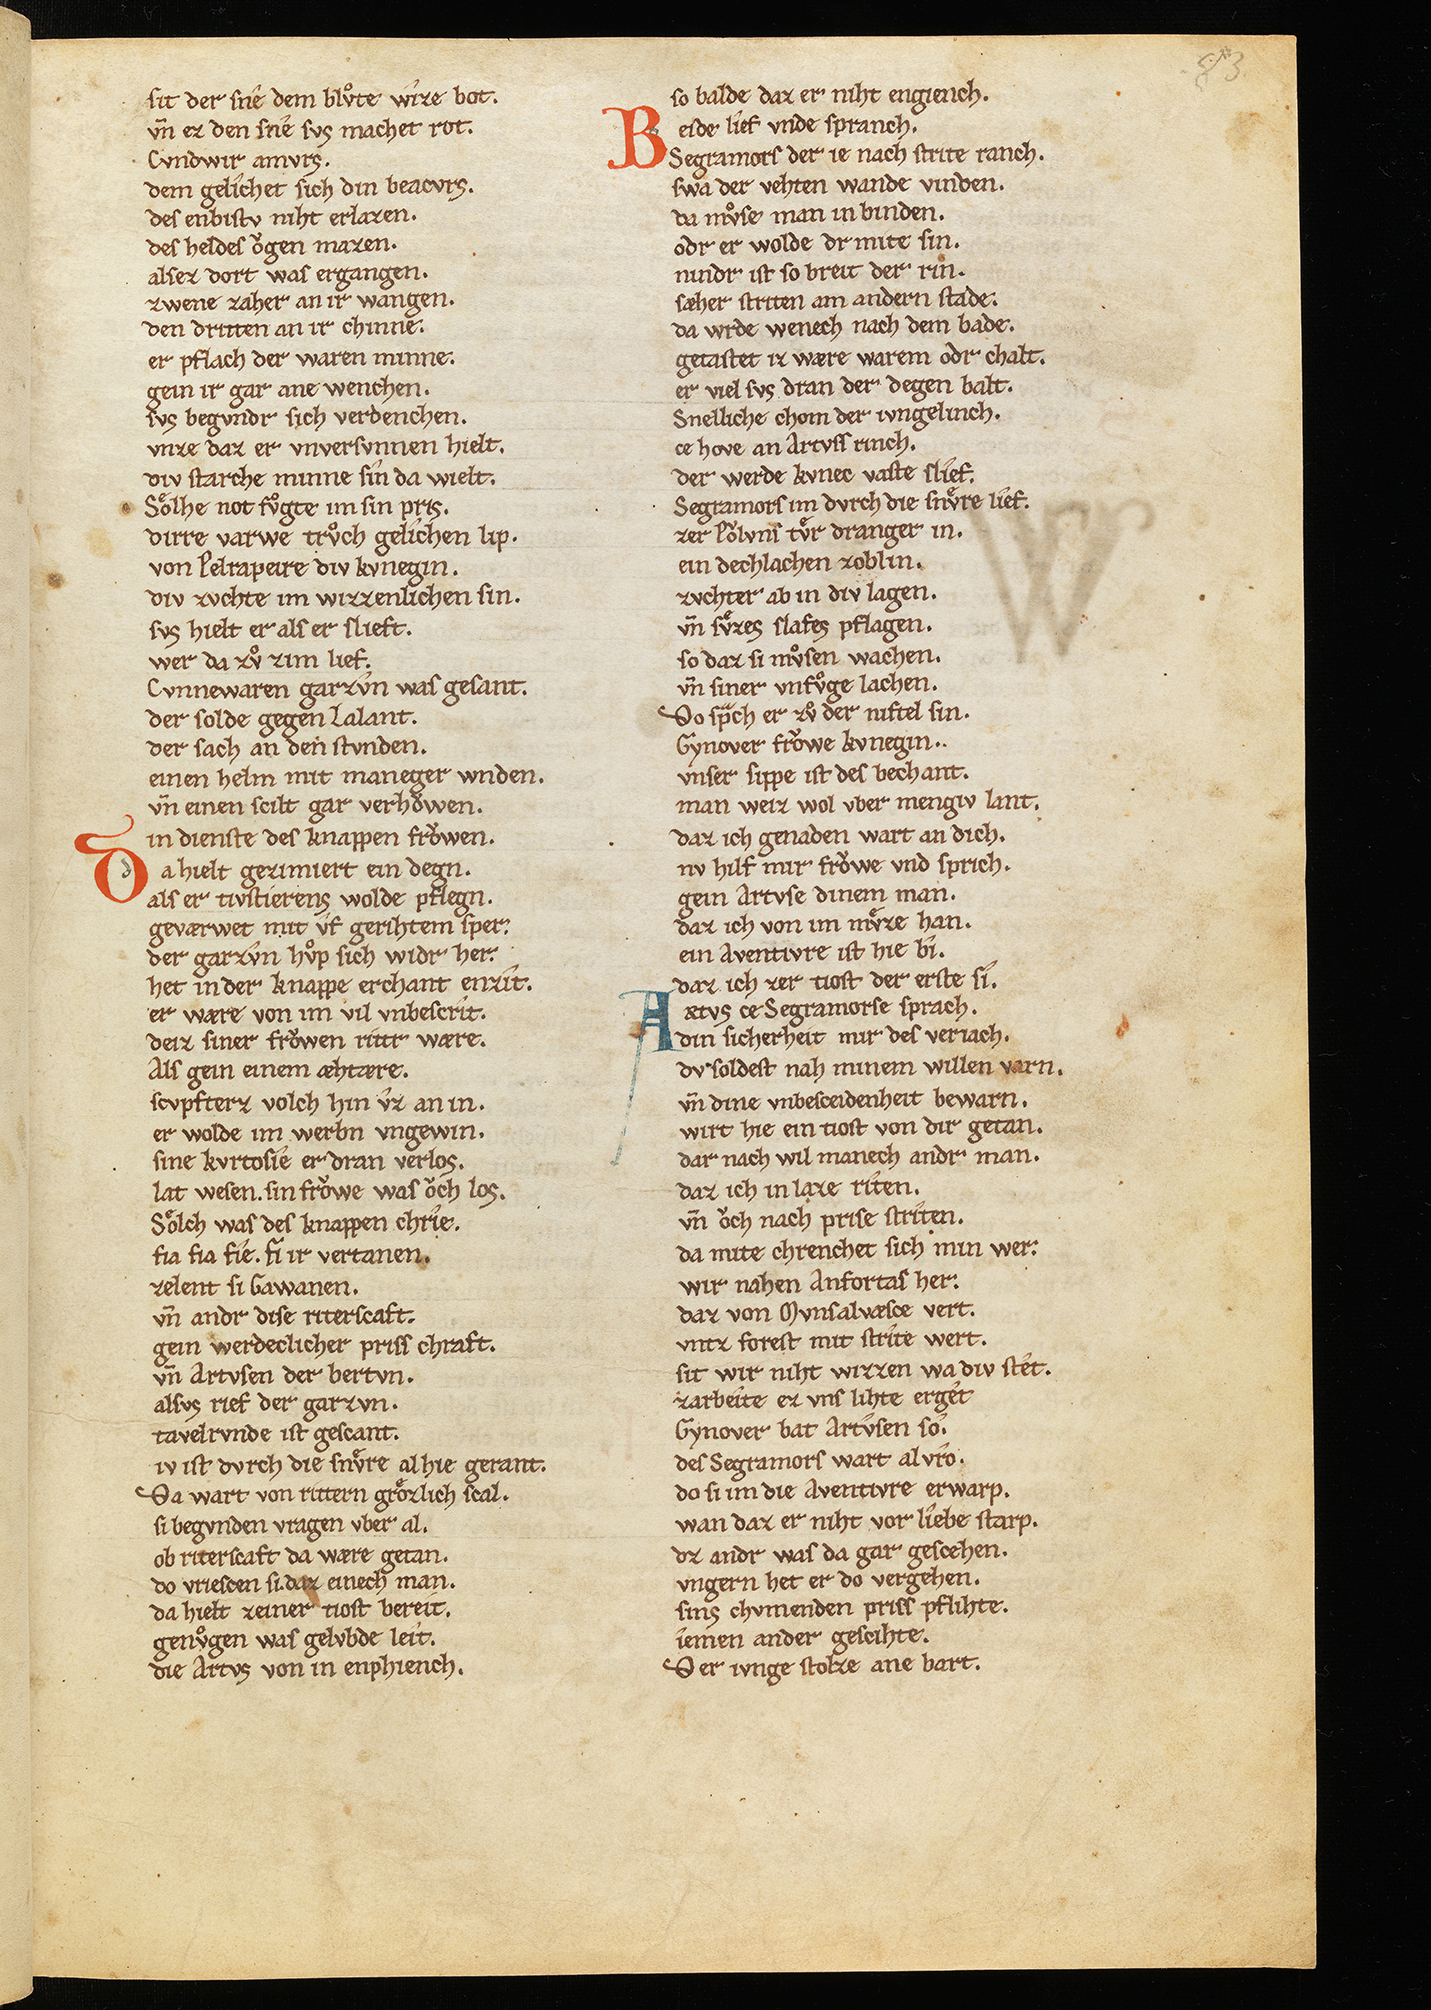 sit der sne dem blvͦte wize bot.
vn̄ er den sne svs machet rot.
Cvndwir amvrs.
dem gelichet sich din beacvrs.
des enbistv niht erlazen.
des heldes oͮgen mazen.
alsez dort was ergangen.
zwene zaher an ir wangen.
den dritten an ir chinne.
er pflach der waren minne.
gein ir gar ane wenchen.
svs begvndr sich verdenchen.
vnze daz er vnversvnnen hielt.
div starche minne sin da wielt.
Soͤlhe not fvͦgte im sin pris.
dirre varwe trvͦch gelichen lip.
von Pelrapeire div kvnegin.
div zvchte im wizzenlichen sin.
svs hielt er als er slieft.
wer da zvͦ zim lief.
Cvnnewaren garzvn was gesant.
der solde gegen Lalant.
der sach an den stvnden.
einen helm mit maneger wnden.
vn̄ einen scilt gar verhoͮwen.
in dienste des knappen froͮwen.
Da hielt gezimiert ein degn.
als er tivstierens wolde pflegn.
geværwet mit vf gerihtem sper.
der garzvn hvͦp sich widr her.
het in der knappe erchant enzit.
er wære von im vil vnbescrit.
deiz siner froͮwen rittr wære.
Als gein einem æhtære.
scvpfterz volch hin vz an in.
er wolde im werbn vngewin.
sine kvrtosie er dran verlos.
lat wesen. sin froͮwe was oͮch los.
Soͤlch was des knappen chrie.
fia fia fie. fi ir vertanen.
zelent si Gawanen.
vn̄ andr dise riterscaft.
gein werdeclicher priss chraft.
vn̄ Artvsen der bertvn.
alsvs rief der garzvn.
tavelrvnde ist gescant.
iv ist dvrch die snvͤre al hie gerant.
Da wart von rittern groͤzlich scal.
si begvnden vragen vber al.
ob riterscaft da wære getan.
do vriescen si. daz einech man.
da hielt zeiner tiost bereit.
genvͦgen was gelvbde leit.
die Artvs von in enphiench.
so balde daz er niht engiench.
Beide lief vnde spranch.
Segramors der ie nach strite ranch.
swa der vehten wande vinden.
da mvͦse man in binden.
odr er wolde dr mite sin.
nindr ist so breit der rin.
sæher striten am andern stade.
da wrde wenech nach dem bade.
getastet iz wære warem odr chalt.
er viel svs dran der degen balt.
Snelliche chom der ivngelinch.
ce hove an Artvss rinch.
der werde kvnec vaste slief.
Segramors im dvrch die snvͤre lief.
zer Poͮlvns tvͤr dranger in.
ein dechlachen zoblin.
zvchter ab in div lagen.
vn̄ svͤzes slafes pflagen.
so daz si mvͦsen wachen.
vn̄ siner vnfvͦge lachen.
Do spͣch er zvͦ der niftel sin.
Gynover froͮwe kvnegin..
vnser sippe ist des bechant.
man weiz wol vber mengiv lant.
daz ich genaden wart an dich.
nv hilf mir froͮwe vnd sprich.
gein Artvse dinem man.
daz ich von im mvͤze han.
ein Aventivre ist hie bi.
daz ich zer tiost der erste si.
Artvs ce Segramorse sprach.
din sicherheit mir des veriach.
dv soldest nah minem willen varn.
vn̄ dine vnbesceidenheit bewarn.
wirt hie ein tiost von dir getan.
dar nach wil manech andr man.
daz ich in laze riten.
vn̄ oͮch nach prise striten.
da mite chrenchet sich min wer.
wir nahen Anfortas her.
daz von Mvnsalvæsce vert.
vntz forest mit strite wert.
sit wir niht wizzen wa div stet.
zarbeite ez vns lihte erget
Gynover bat Artvsen so.
des Segramors wart al vro.
do si im die Aventivre erwarp.
wan daz er niht vor liebe starp.
dz andr was da gar gescehen.
vngern het er do vergehen.
sins chvmenden priss pflihte.
iemen ander gescihte.
Der ivnge stolze ane bart.